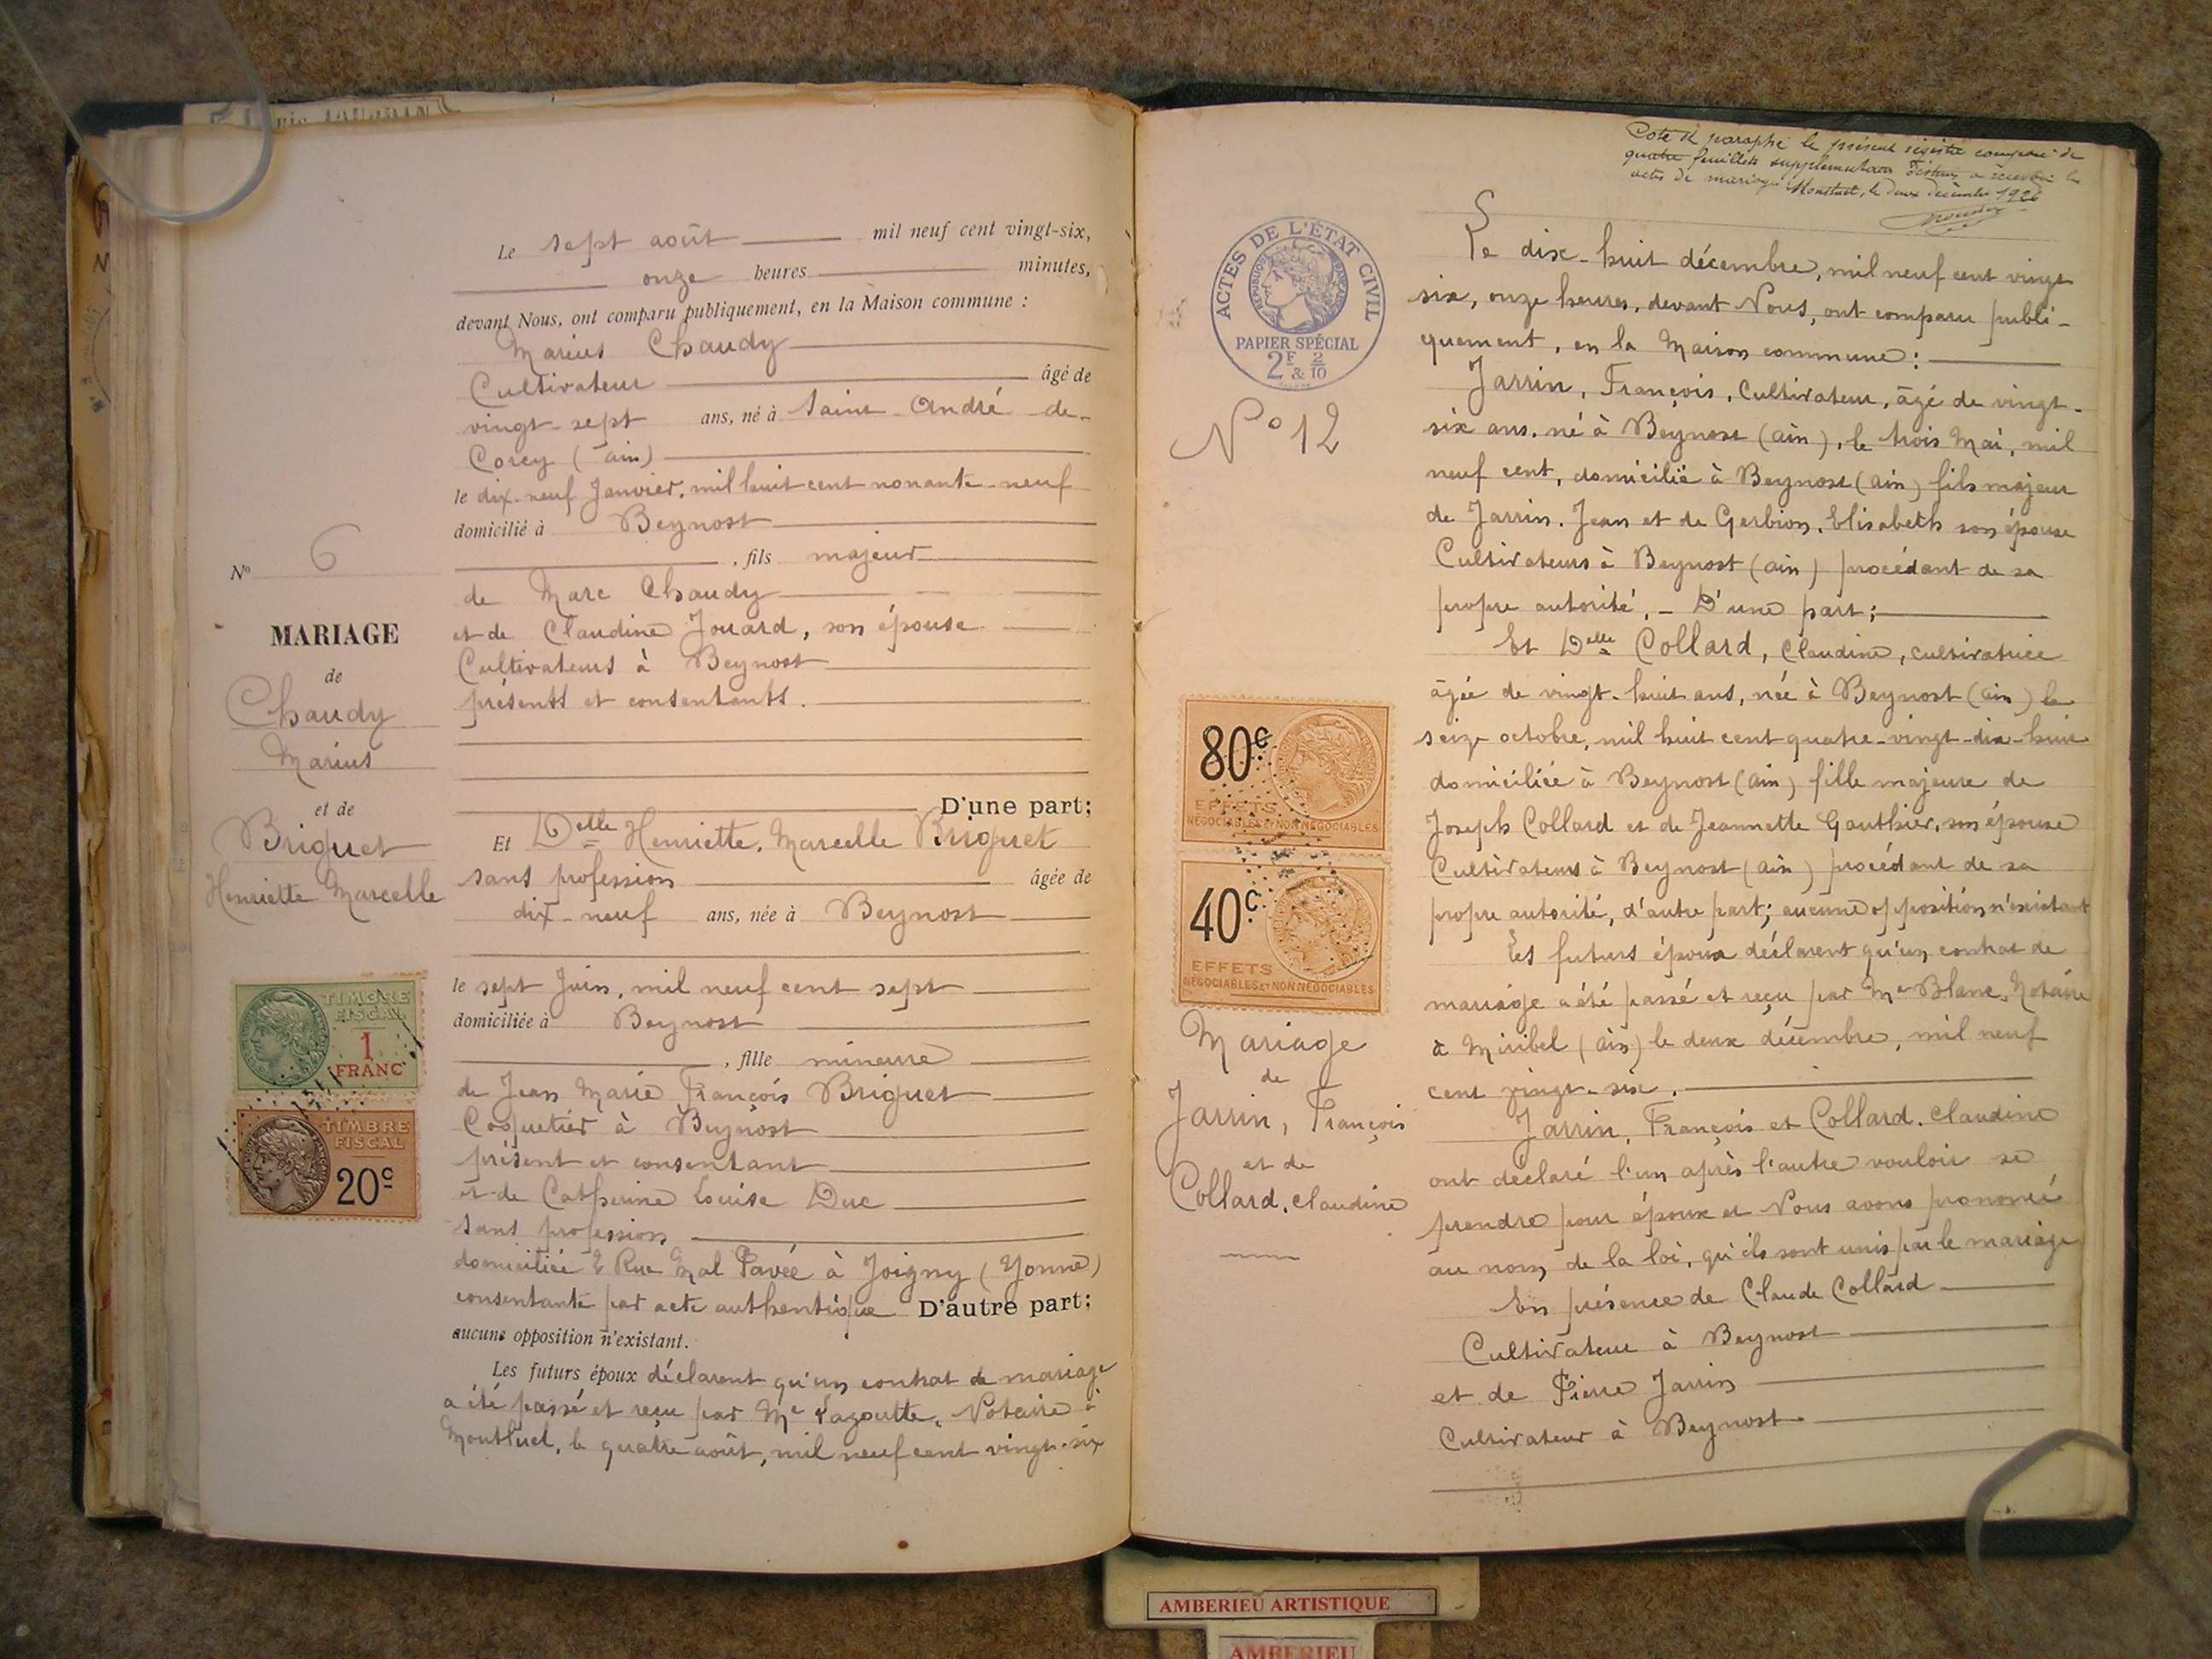 Le sept août mil neuf cent vingt-six,
onze heures minutes,
devant Nous, ont comparu publiquement, en la Maison commune :
Marius Chaudy
Cultivateur âgé de
vingt-sept ans, né à Saint-André-de-
Corcy (ain)
le dix-neuf Janvier, mil huit cent nonante-neuf
domicilié à Beynost
, fils majeur
de Marc Chaudy
et de Claudine Jouard, son épouse
Cultivateurs à Beynost
présents et consentants.
D'une part;
Et Delle Henriette, Marcelle Briguet
sans profession âgée de
dix-neuf ans, née à Beynost
le sept Juin, mil neuf cent sept
domiciliée à Beynost
, fille mineure
de Jean Marie François Briguet
Coquetier à Beynost
présent et consentant
et de Catherine Louise Duc
sans profession
domiciliée Rue Mal Pavée à Joigny (Yonne)
consentante par acte authentique D'autre part;
aucune opposition n'existant.
Les futurs époux déclarent qu'un contrat de mariage
a été passé et reçu par Me Lagoutte, Notaire à
Montluel, le quatre août, mil neuf cent vingt-six
No 6
MARIAGE
de
Chaudy
Marius
et de
Briguet
Henriette Marcelle
TIMBRE
FISCAL
1
FRANC
TIMBRE
FISCAL
20c
Coté et paraphé le présent registre composé de
quatre feuillets supplémentaires destinés à recevoir les
actes de mariage Montluel, le deux décembre 1926
ACTES DE L'ÉTAT CIVIL
RÉPUBLIQUE FRANÇAISE
PAPIER SPÉCIAL
2F & 2/10
No 12
80c
EFFETS
NÉGOCIABLES ET NON NÉGOCIABLES
40c
EFFETS
NÉGOCIABLES ET NON NÉGOCIABLES
Mariage
de
Jarrin, François
et de
Collard, Claudine
Le dix-huit décembre, mil neuf cent vingt
six, onze heures, devant Nous, ont comparu publi-
quement, en la Maison commune :
Jarrin, François, Cultivateur, âgé de vingt-
six ans, né à Beynost (ain), le trois Mai, mil
neuf cent, domicilié à Beynost (ain) fils majeur
de Jarrin, Jean et de Gerbion, Elisabeth son épouse
Cultivateurs à Beynost (ain) procédant de sa
propre autorité, - D'une part;
Et Delle Collard, Claudine, cultivatrice
âgée de vingt-huit ans, née à Beynost (ain) le
seize octobre, mil huit cent quatre-vingt-dix-huit
domiciliée à Beynost (ain) fille majeure de
Joseph Collard et de Jeannette Gauthier, son épouse
Cultivateurs à Beynost (ain) procédant de sa
propre autorité, d'autre part; aucune opposition n'existant
Les futurs époux déclarent qu'un contrat de
mariage a été passé et reçu par Me Blanc, Notaire
à Miribel (ain) le deux décembre, mil neuf
cent vingt-six.
Jarrin, François et Collard, Claudine
ont déclaré l'un après l'autre vouloir se
prendre pour époux et Nous avons prononcé
au nom de la loi, qu'ils sont unis par le mariage
En présence de Claude Collard
Cultivateur à Beynost
et de Pierre Jarrin
Cultivateur à Beynost.
AMBERIEU ARTISTIQUE
AMBERIEU